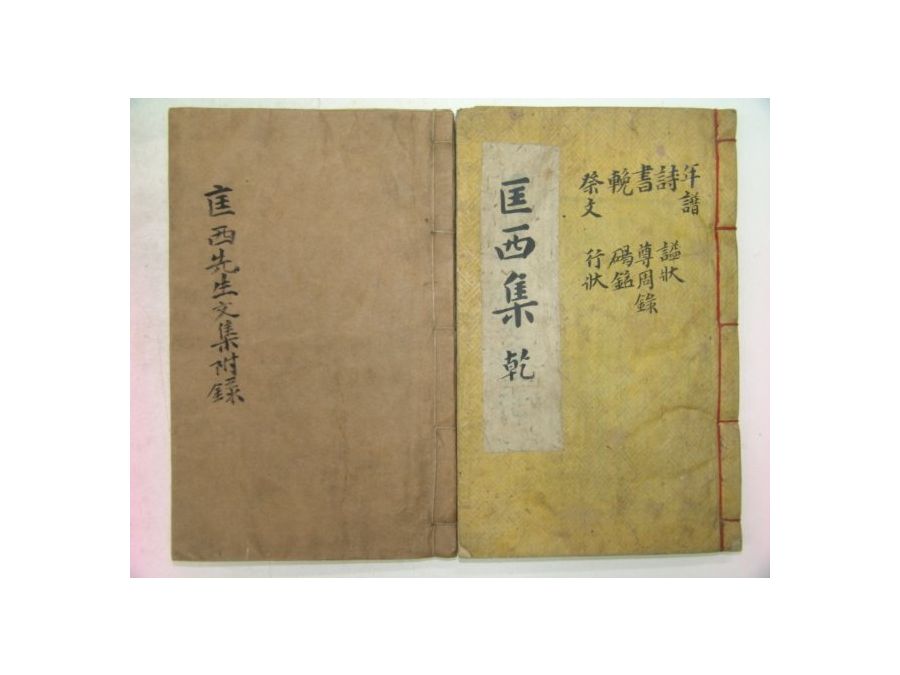 年譜
詩 謚狀
書 尊周錄
輓 碣銘
祭文 行狀
匡西集 乾
匡西先生文集附錄